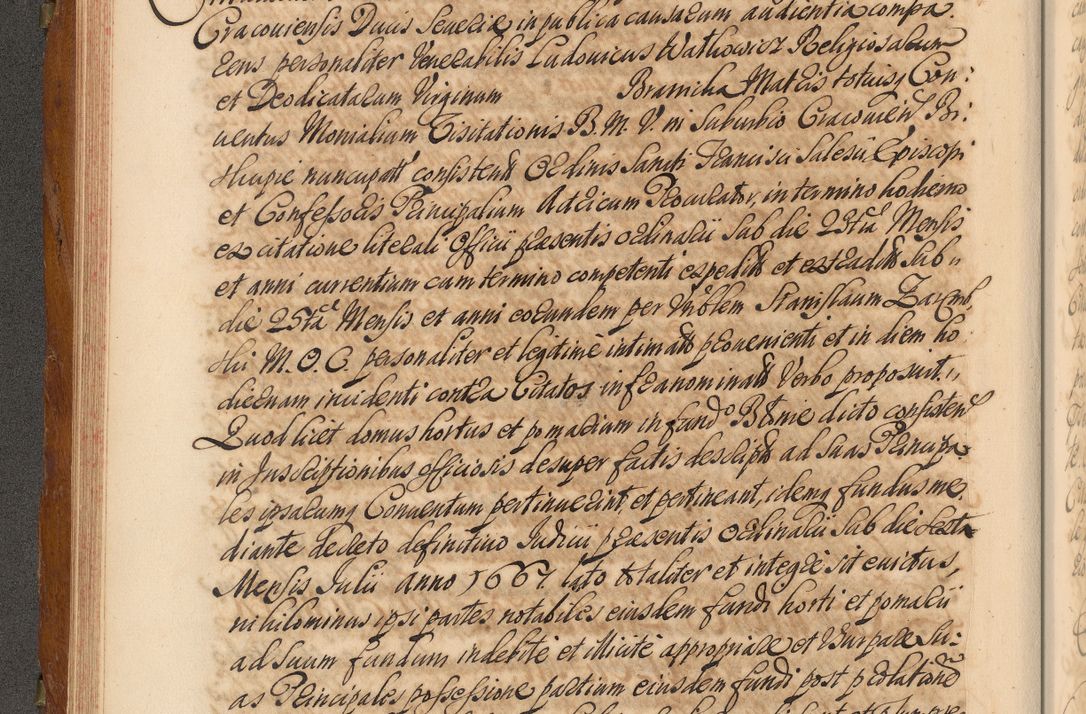 Cracoviensis Ducis Severiæ in publica causarum audientia compa:
rens personaliter Venerabilis Ludovicus Wathowicz Religiosarum
et Deodicatarum Virginum Bramicka Matris totiusq Con:
ventus Monialium Visitationis B. M. V. in Suburbio Cracovien Bi:
skupie nuncupatt consisten Ordinis Sancti Francisci Salesii Episcopi
et Confessoris Principalium Actricum Procurator, in termino hodierno
ex citatione literali Officii præsentis ordinarii sub die 25ta Mensis
et anni currentium cum termino competenti expedit et extradit sub
die 25ta Mensis et anni eorundem per Stanislaum
M. O. C. personaliter et legitime intimatt provenienti et in diem ho
diernam incidenti contra Citatos infranominatt Verbo proposuit.
Quod licet domus hortus et pomarium in fundo dicto consisten
in Inscriptionibus officiosis desuper factis descript ad suas Principa
les ipsarumq Conventum pertinuerint et pertineant, idemq fundus me
diante decreto definitivo Iudicii præsentis Ordinarii sub die sexta
Mensis Julii anno 1667 lato totaliter et integre sit evictus,
nihilominus ipsi partes notabiles eiusdem fundi horti et pomarii
ad suum fundum indebite et illicite appropriare et usurpare su:
as Principales possessione partium eiusdem fundi post prolatione